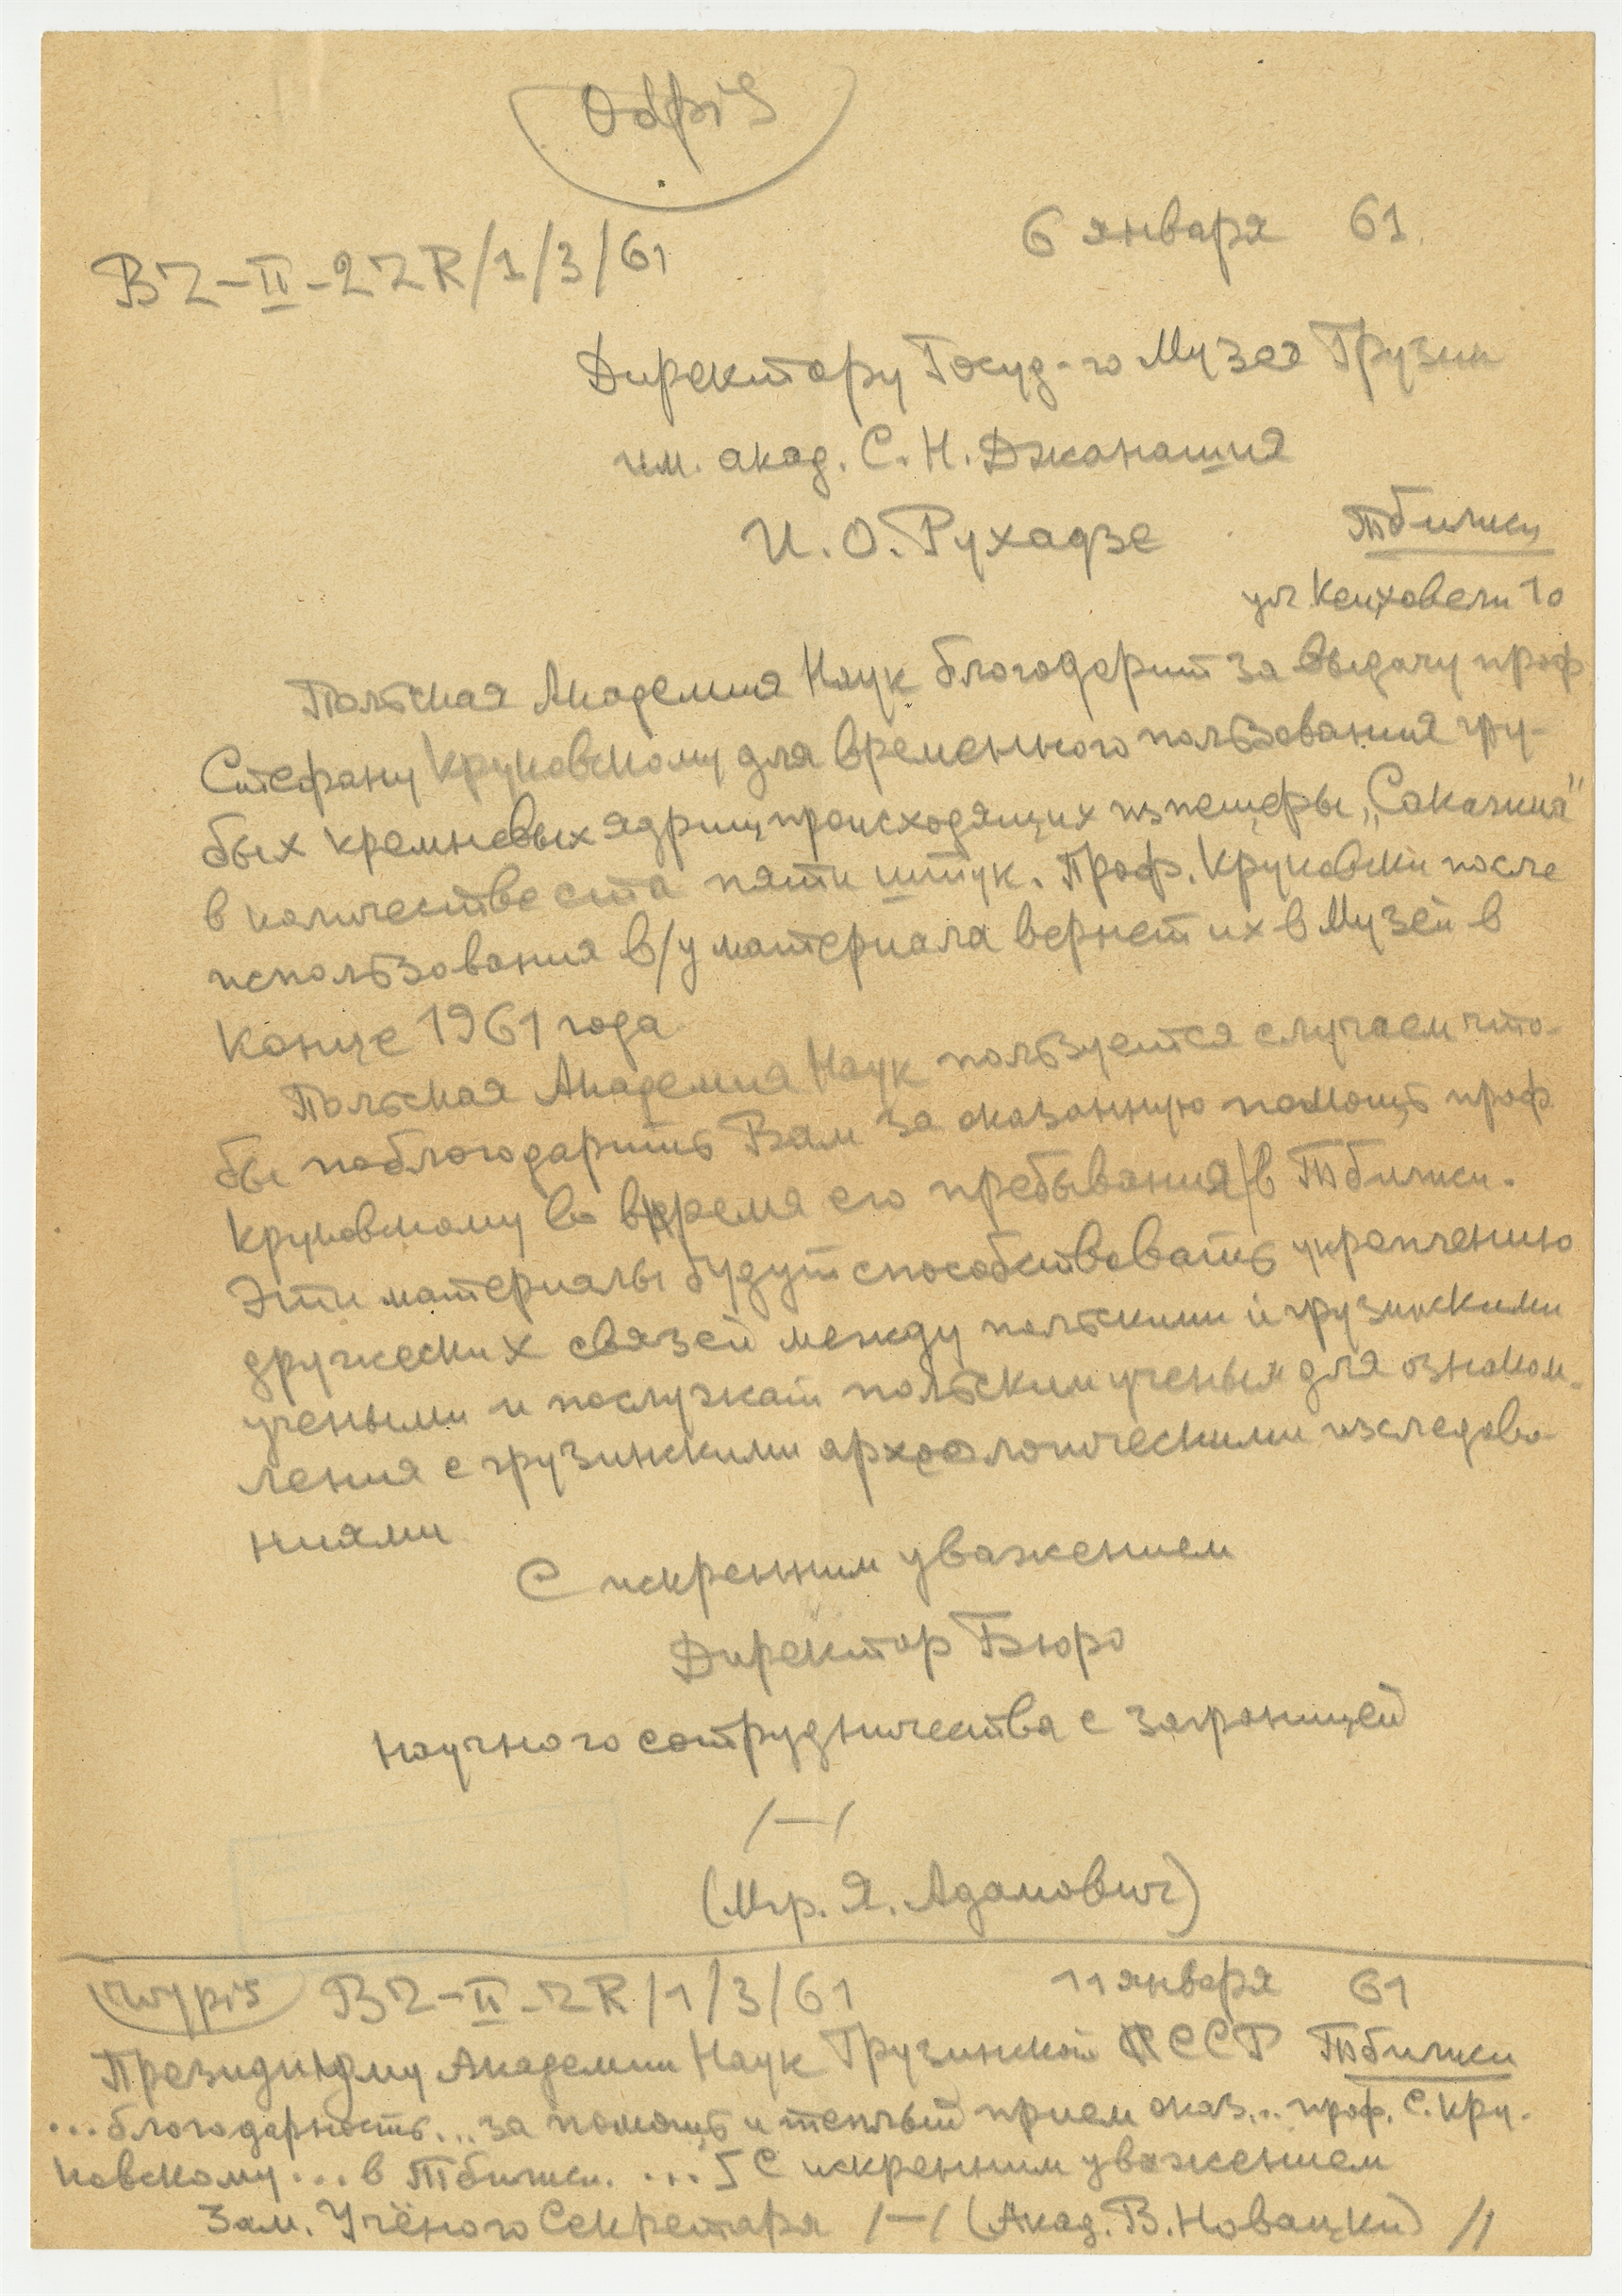 Odpis
6 января 61.
BZ-II-2ZR/1/3/61
Директору Госуд-го Музея Грузии
им. акад. С. Н. Джанашия
И. О. Рухадзе
Тбилиси
ул Кецховели 10
Польская Академия Наук благодарит за выдачу проф
Стефану Круковскому для временного пользования гру-
бых кремневых ядрищ происходящих из пещеры „Сакажиа"
в количестве ста пяти штук. Проф. Круковски после
использования в/у материала вернет их в Музей в
конце 1961 года
Польская Академия Наук пользуется случаем что-
бы поблагодарить Вам за оказанную помощь проф
Круковскому во время его пребывания в Тбилиси.
Эти материалы будут способствовать укреплению
дружеских связей между польскими и грузинскими
учеными и послужат польским ученым для ознаком-
ления с грузинскими археологическими изследова-
ниями
С искренним уважением
Директор Бюро
научного сотрудничества с заграницей
/—/
(Мгр. Я. Адамович)
wypis BZ-II-ZR/1/3/61 11 января 61
Президиуму Академии Наук Грузинской ССР Тбилиси
...благодарность... за помощь и теплый прием оказ... проф. С. Кру-
ковскому ... в Тбилиси. ... С искренним уважением
Зам. Учёного Секретаря /—/ (Акад. В. Новацки) //